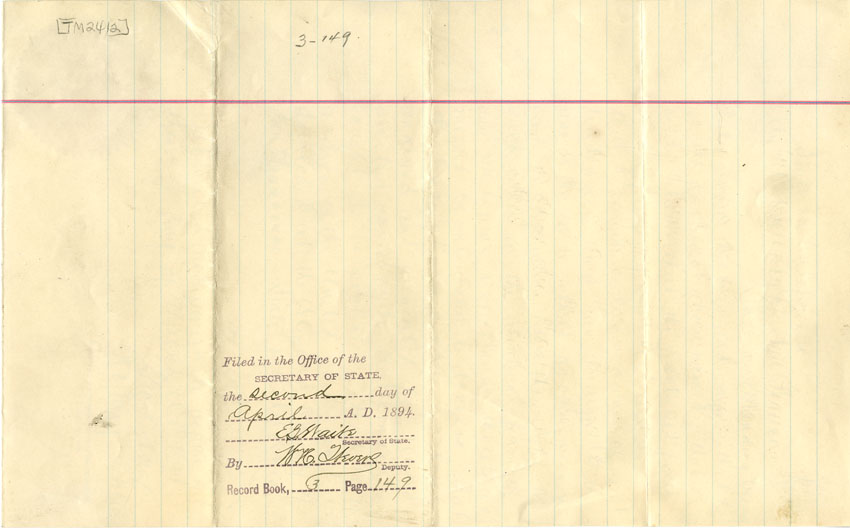 [TM2412]
3-149.
Filed in the Office of the
SECRETARY OF STATE,
the second day of
April A. D. 1894.
E B Waite
Secretary of State.
By W. H.
Deputy.
Record Book, 3 Page 149